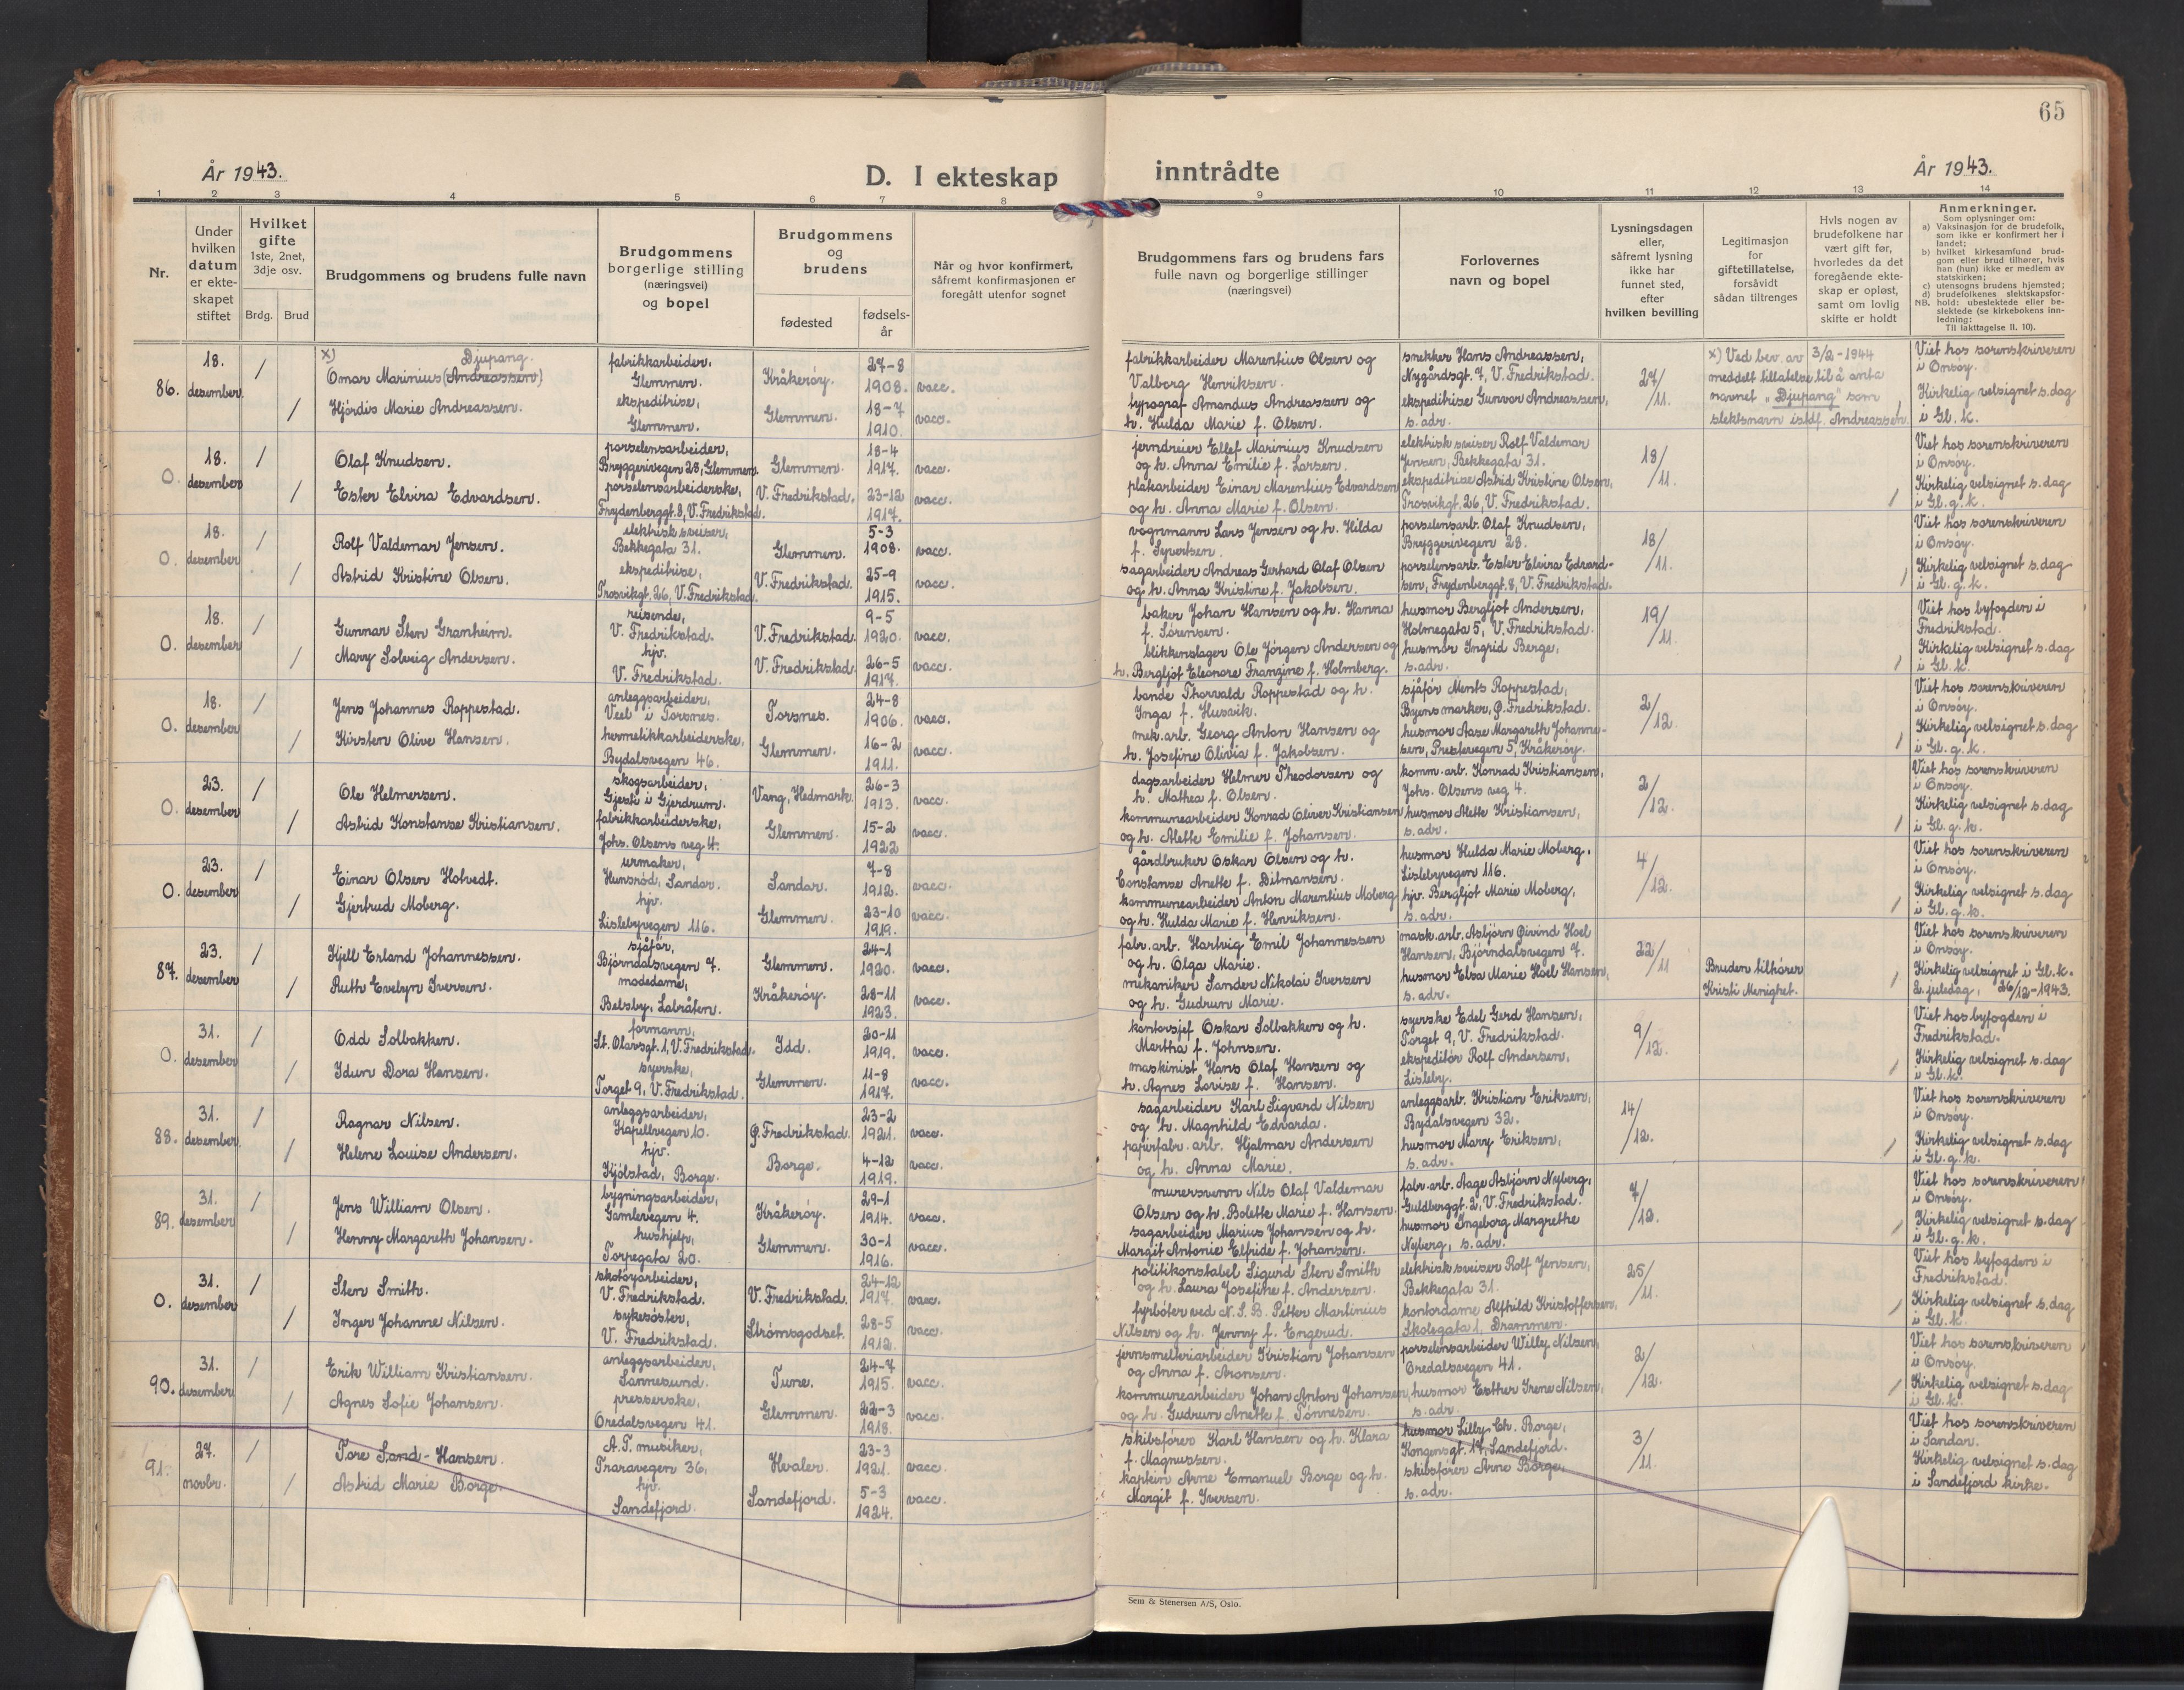 65
År 1943.
D. I ekteskap inntrådte
År 1943.
1 2 3 4 5 6 7 8 9 10 11 12 13 14
Nr.
Under hvilken datum er ekte-skapet stiftet
Hvilket gifte
1ste, 2net, 3dje osv.
Brdg. Brud
Brudgommens og brudens fulle navn
Brudgommens
borgerlige stilling
(næringsvei)
og bopel
Brudgommens
og
brudens
fødested
fødsels-
år
Når og hvor konfirmert,
såfremt konfirmasjonen er
foregått utenfor sognet
Brudgommens fars og brudens fars
fulle navn og borgerlige stillinger
(næringsvei)
Forlovernes
navn og bopel
Lysningsdagen
eller,
såfremt lysning
ikke har
funnet sted,
efter
hvilken bevilling
Legitimasjon
for
giftetillatelse,
forsåvidt
sådan tiltrenges
Hvis nogen av
brudefolkene har
vært gift før,
hvorledes da det
foregående ekte-
skap er opløst,
samt om lovlig
skifte er holdt
Anmerkninger.
Som oplysninger om:
a) Vaksinasjon for de brudefolk,
som ikke er konfirmert her i
landet;
b) hvilket kirkesamfund brud-
gom eller brud tilhører, hvis
han (hun) ikke er medlem av
statskirken;
c) utensogns brudens hjemsted;
d) brudefolkenes slektskapsfor-
NB. hold: ubeslektede eller be-
slektede (se kirkebokens inn-
ledning:
Til iakttagelse II. 10).
86.
18.
desember
/
/
x) Djupang.
Omar Marinius (Andreassen)
Hjördis Marie Andreassen.
fabrikkarbeider,
Glemmen.
ekspeditrise,
Glemmen.
Kråkeröy.
Glemmen.
27-8
1908.
18-7
1910.
vacc.
vacc.
fabrikkarbeider Marentius Olsen og
Valborg Henriksen.
typograf Amandus Andreassen og
h. Hulda Marie f. Olsen.
snekker Hans Andreassen,
Nygårdsgt. 7, V. Fredrikstad.
ekspeditrise Gunvor Andreassen,
s. adr.
27/11.
x) Ved bev. av 3/2-1944
meddelt tillatelse til å anta
navnet "Djupang" som
slektsnavn istdf. Andreassen.
Viet hos sorenskriveren
i Onsöy.
Kirkelig velsignet s. dag
i Gl. k.
0.
18.
desember
/
/
Olaf Knudsen.
Ester Elvira Edvardsen.
porselensarbeider,
Bryggerivegen 28, Glemmen.
porselensarbeiderske,
Frydenberggt. 8, V. Fredrikstad.
Glemmen.
V. Fredrikstad.
18-4
1917.
23-12
1917.
vacc.
vacc.
jerndreier Ellef Marinius Knudsen
og h. Anna Emilie f. Larsen.
platearbeider Einar Marentius Edvardsen
og h. Anna Marie f. Olsen.
elektrisk sveiser Rolf Valdemar
Jensen, Bekkegata 31.
ekspeditrise Astrid Kristine Olsen,
Trosvikgt. 26, V. Fredrikstad.
18/11.
Viet hos sorenskriveren
i Onsöy.
Kirkelig velsignet s. dag
i Gl. g. k.
0.
18.
desember
/
/
Rolf Valdemar Jensen.
Astrid Kristine Olsen.
elektrisk sveiser,
Bekkegata 31.
ekspeditrise,
Trosvikgt. 26, V. Fredrikstad.
Glemmen.
V. Fredrikstad.
5-3
1908.
25-9
1915.
vacc.
vacc.
vognmann Lars Jensen og h. Hilda
f. Syvertsen.
sagarbeider Andreas Gerhard Olaf Olsen
og h. Anna Kristine f. Jakobsen.
porselensarb. Olaf Knudsen,
Bryggerivegen 28.
porselensarb. Ester Elvira Edvard-
sen, Frydenberggt. 8, V. Fredrikstad.
18/11.
Viet hos sorenskriveren
i Onsöy.
Kirkelig velsignet s. dag
i Gl. g. k.
0.
18.
desember
/
/
Gunnar Sten Granheim.
Mary Solveig Andersen.
reisende,
V. Fredrikstad.
hjv.
V. Fredrikstad.
V. Fredrikstad.
V. Fredrikstad
9-5
1920.
26-5
1917.
vacc.
vacc.
baker Johan Hansen og h. Hanna
f. Sörensen.
blikkenslager Ole Jörgen Andersen og
h. Bergljot Eleonore Franzine f. Holmberg.
husmor Bergljot Andersen,
Holmegata 5, V. Fredrikstad.
husmor Ingrid Berge,
s. adr.
19/11.
Viet hos byfogden i
Fredrikstad.
Kirkelig velsignet s. dag
i Gl. k.
0.
18.
desember
/
/
Jens Johannes Roppestad.
Kirsten Olive Hansen.
anleggsarbeider,
Veel i Torsnes.
hermetikkarbeiderske,
Bydalsvegen 46.
Torsnes.
Glemmen.
24-8
1906.
16-2
1911.
vacc.
vacc.
bonde Thorvald Roppestad og h.
Inga f. Husvik.
mek. arb. Georg Anton Hansen og
h. Josefine Olivia f. Jakobsen.
sjåför Ments Roppestad,
Byens marker, Ø. Fredrikstad.
husmor Aase Margareth Johanne-
sen, Prestevegen 5, Kråkeröy.
2/12.
Viet hos sorenskriveren
i Onsöy.
Kirkelig velsignet s. dag
i Gl. g. k.
0.
23.
desember
/
/
Ole Helmersen.
Astrid Konstanse Kristiansen.
skogsarbeider,
Gjesti i Gjerdrum.
fabrikkarbeiderske,
Johs. Olsens veg 4.
Vang, Hedmark.
Glemmen.
26-3
1913.
15-2
1922
vacc.
vacc.
dagsarbeider Helmer Theodorsen og
h. Mathea f. Olsen.
kommunearbeider Konrad Oliver Kristiansen
og h. Alette Emilie f. Johansen.
komm. arb. Konrad Kristiansen,
Johs. Olsens veg 4.
husmor Alette Kristiansen,
s. adr.
2/12.
Viet hos sorenskriveren
i Onsöy.
Kirkelig velsignet s. dag
i Gl. g. k.
0.
23.
desember
/
/
Einar Olsen Hotvedt.
Gjertrud Moberg.
urmaker,
Hunsröd, Sandar.
hjv.
Lislebyvegen 116.
Sandar.
Glemmen.
7-8
1912.
23-10
1919.
vacc.
vacc.
gårdbruker Oskar Olsen og h.
Constanse Anette f. Ditmansen.
kommunearbeider Anton Marentius Moberg
og h. Hulda Marie f. Henriksen.
husmor Hulda Marie Moberg,
Lislebyvegen 116.
hjv. Bergljot Marie Moberg,
s. adr.
4/12.
Viet hos sorenskriveren
i Onsöy.
Kirkelig velsignet s. dag
i Gl. g. k.
87.
23.
desember
/
/
Kjell Erland Johannessen.
Ruth Evelyn Iversen.
sjåför,
Björndalsvegen 7.
modedame,
Belsby, Labråten.
Glemmen.
Kråkeröy.
24-1
1920.
28-11
1923.
vacc.
vacc.
fabr. arb. Hartvig Emil Johannessen
og h. Olga Marie.
mekaniker Sander Nikolai Iversen
og h. Gudrun Marie.
mask. arb. Asbjörn Øivind Hoel
Hansen, Björndalsvegen 7.
husmor Elsa Marie Hoel Hansen,
s. adr.
22/11
Bruden tilhører
Kristi Menighet.
Viet hos sorenskriveren
i Onsöy.
Kirkelig velsignet i Gl. k.
2. juledag, 26/12-1943.
0.
31.
desember
/
/
Odd Solbakken.
Idun Dora Hansen.
formann,
St. Olavsgt. 1, V. Fredrikstad.
syerske,
Torget 9, V. Fredrikstad.
Idd.
Glemmen.
20-11
1919.
11-8
1917.
vacc.
vacc.
kontorsjef Oskar Solbakken og h.
Martha f. Johnsen.
maskinist Hans Olaf Hansen og
h. Agnes Lovise f. Hansen.
syerske Edel Gerd Hansen,
Torget 9, V. Fredrikstad.
ekspeditör Rolf Andersen,
Lisleby.
9/12.
Viet hos byfogden i
Fredrikstad.
Kirkelig velsignet s. dag
i Gl. k.
88.
31.
desember
/
/
Ragnar Nilsen.
Helene Louise Andersen.
anleggsarbeider,
Kapellvegen 10.
hjv.
Kjölstad, Borge.
Ø. Fredrikstad.
Borge.
23-2
1921.
4-12
1919.
vacc.
vacc.
sagarbeider Karl Sigvard Nilsen
og h. Magnhild Edvarda.
papirfabr. arb. Hjalmar Andersen
og h. Anna Marie.
anleggsarb. Kristian Eriksen,
Bydalsvegen 32.
husmor Mary Eriksen,
s. adr.
14/12.
Viet hos sorenskriveren
i Onsöy.
Kirkelig velsignet s. dag
i Gl. g. k.
89.
31.
desember
/
/
Jens William Olsen.
Henny Margareth Johansen.
bygningsarbeider,
Gamlevegen 4.
hushjelp,
Torpegata 20.
Kråkeröy.
Glemmen.
29-1
1914.
30-1
1916.
vacc.
vacc.
murersvenn Nils Olaf Valdemar
Olsen og h. Bolette Marie f. Hansen.
sagarbeider Marius Johansen og h.
Margit Antonie Elfride f. Johansen.
fabr. arb. Aage Asbjörn Nyberg,
Guldberggt. 2, V. Fredrikstad.
husmor Ingeborg Margrethe
Nyberg, s. adr.
7/12.
Viet hos sorenskriveren
i Onsöy.
Kirkelig velsignet s. dag
i Gl. g. k.
0.
31.
desember
/
/
Sten Smith.
Inger Johanne Nilsen.
skotöyarbeider,
V. Fredrikstad.
sykesöster,
V. Fredrikstad.
V. Fredrikstad.
Strömsgodset.
24-12
1917.
28-5
1912.
vacc.
vacc.
politikonstabel Sigurd Sten Smith
og h. Laura Josefine f. Andersen.
fyrböter ved N. S. B. Petter Martinius
Nilsen og h. Jenny f. Engerud.
elektrisk sveiser Rolf Jensen,
Bekkegata 31.
kontordame Alfhild Kristoffersen,
Skolegata 1, Drammen.
25/11.
Viet hos byfogden i
Fredrikstad.
Kirkelig velsignet s. dag
i Gl. k.
90.
31.
desember
/
/
Erik William Kristiansen.
Agnes Sofie Johansen.
anleggsarbeider,
Sannesund.
presserske,
Oredalsvegen 41.
Tune.
Glemmen.
24-7
1915.
22-3
1918.
vacc.
vacc.
jernsmelteriarbeider Kristian Johansen
og Anna f. Aronsen.
kommunearbeider Johan Anton Johansen
og h. Gudrun Anette f. Tönnesen.
porselensarbeider Willy Nilsen,
Oredalsvegen 41.
husmor Esther Irene Nilsen,
s. adr.
2/12.
Viet hos sorenskriveren
i Onsöy.
Kirkelig velsignet s. dag
i Gl. k.
91.
27.
novbr.
/
/
Tore Sand-Hansen.
Astrid Marie Borge.
A.T. musiker,
Traravegen 36.
hjv.
Sandefjord.
Hvaler.
Sandefjord.
23-3
1921.
5-3
1924.
vacc.
vacc.
skibsförer Karl Hansen og h. Klara
f. Magnussen.
kaptein Arne Emanuel Borge og h.
Margit f. Iversen.
husmor Lilly Ch. Borge,
Kongensgt. 17, Sandefjord.
skibsförer Arne Borge,
s. adr.
3/11.
Viet hos sorenskriveren
i Sandar.
Kirkelig velsignet s. dag
i Sandefjord kirke.
Sem & Stenersen A/S, Oslo.